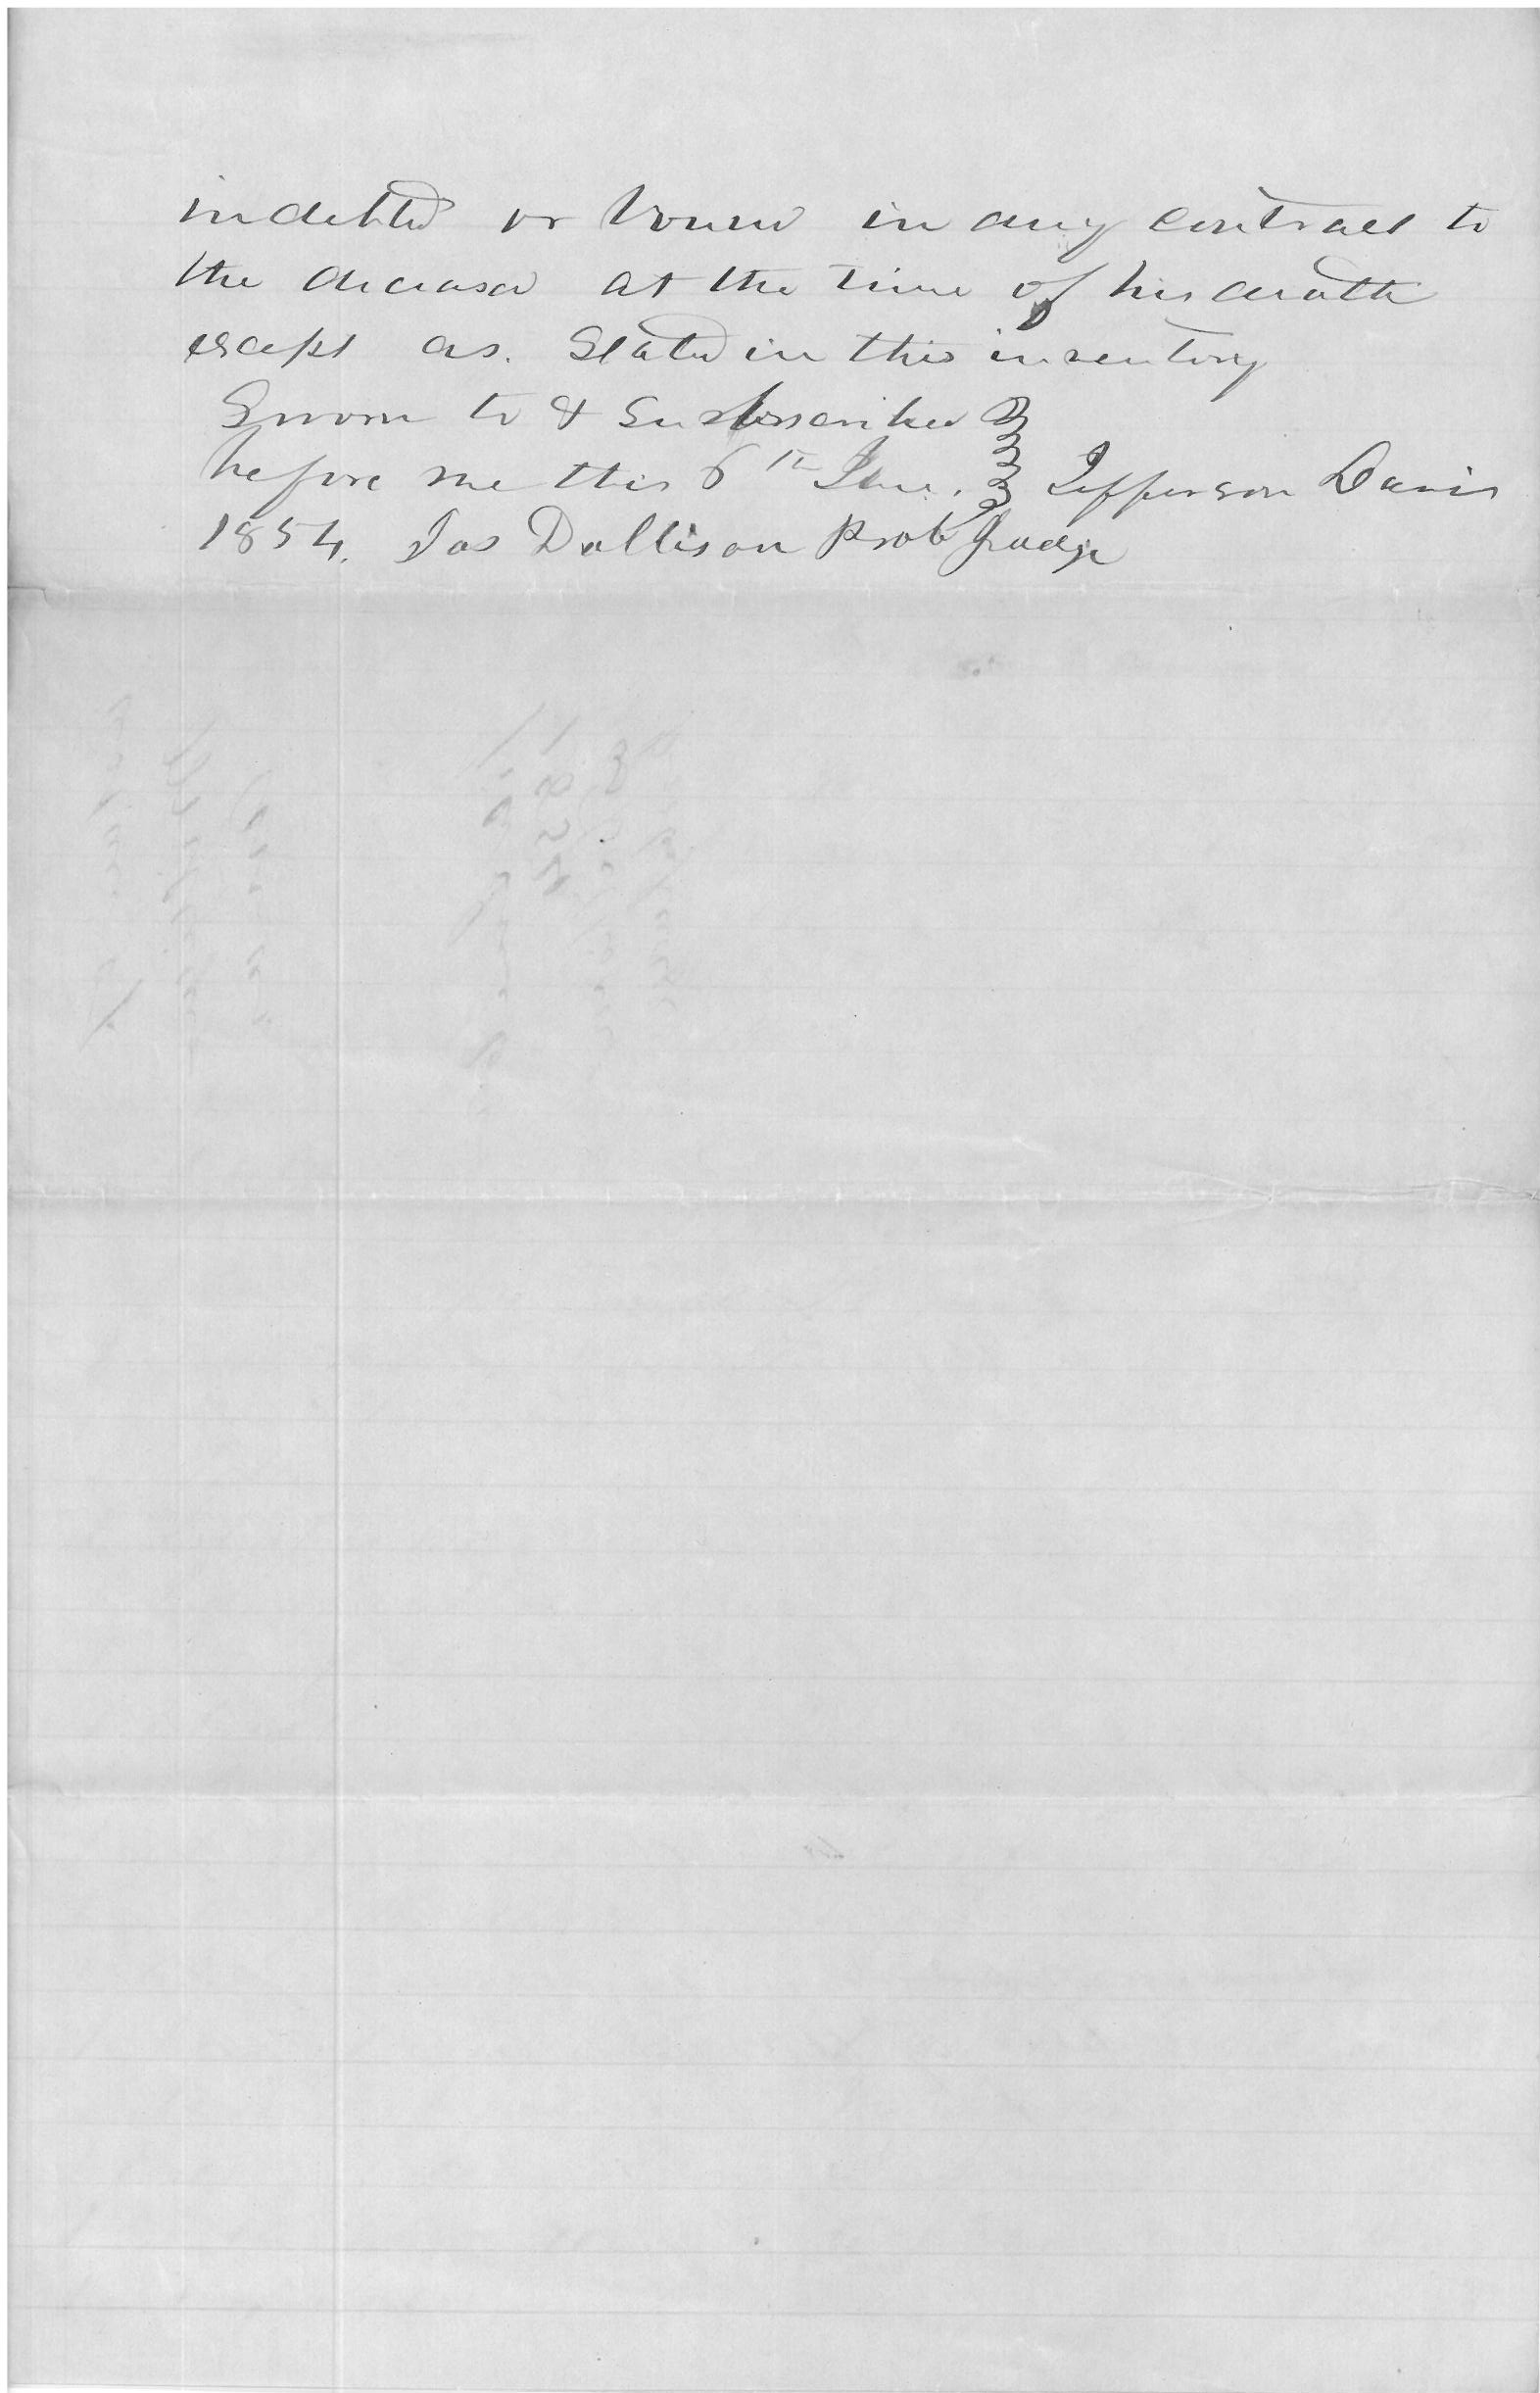 indebted or bound in any contract to
the deceased at the time of his death
except as. Stated in this inventory
Sworn to & Subscribed
before me this 6th June. Jefferson Davis
1854. Jas Dallison Prob Judge